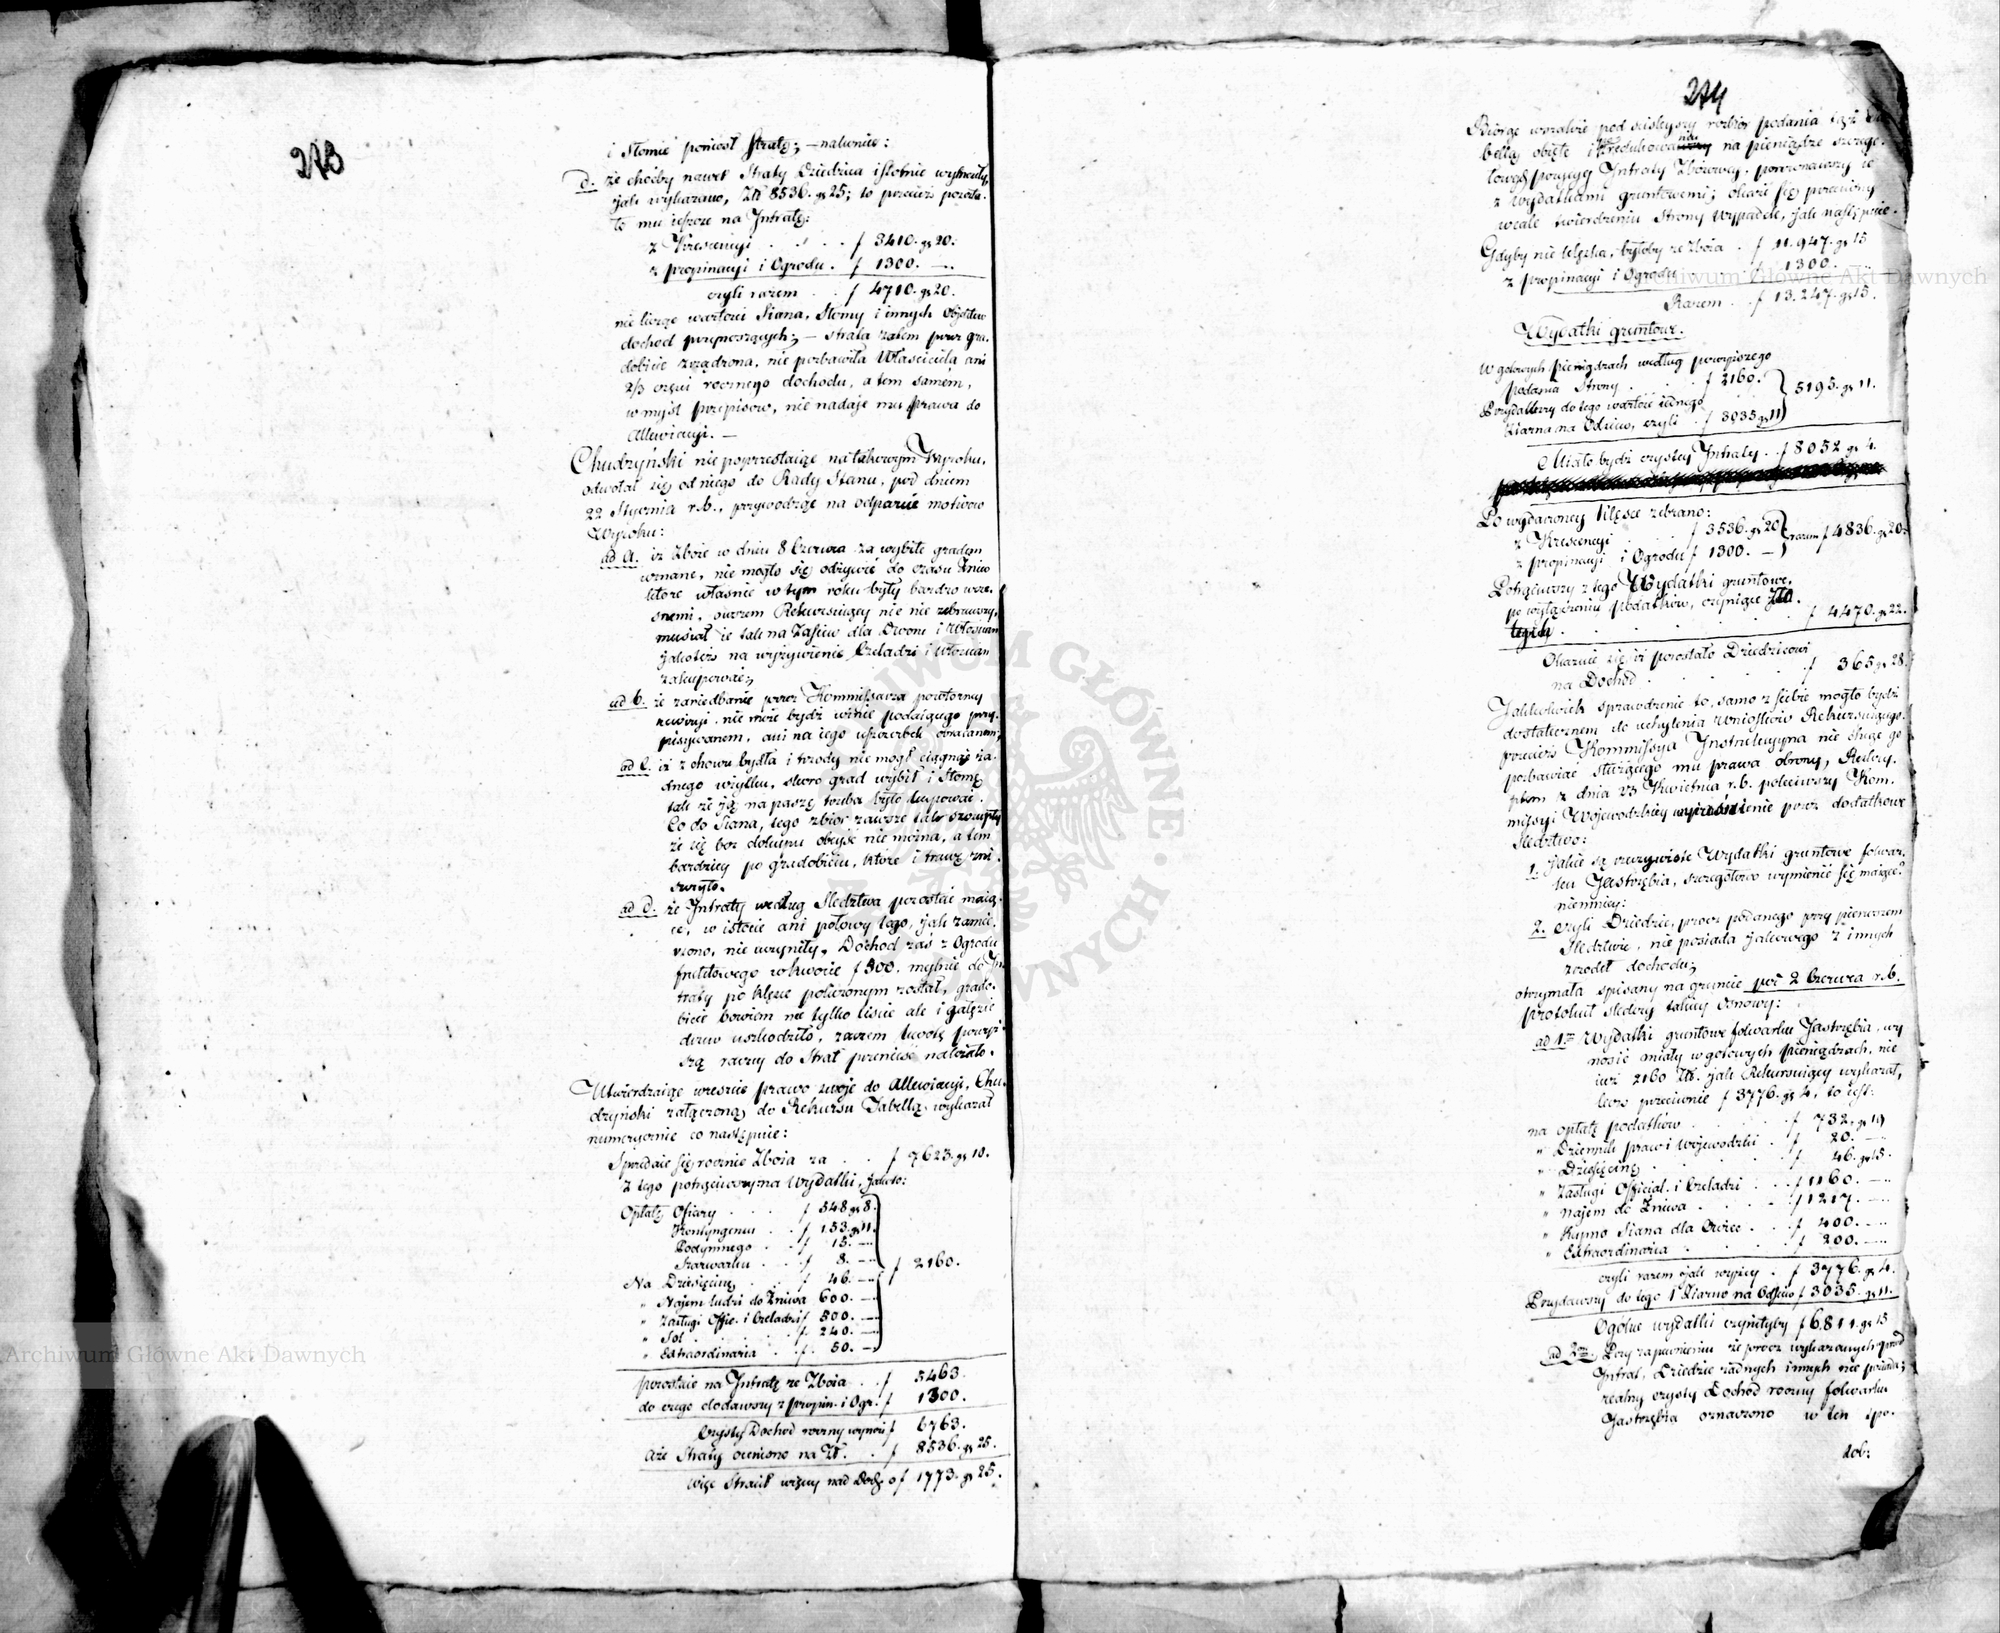 273
i Słomie poniosł Stratę; — nakoniec:
d. że choćby nawet Straty Dziedzica istotnie wyniosły,
jak wykazano, Zł 8536. gr 25; to przecież pozosta-
ło mu ieszcze na Intratę:
z Krescencyi . . . . f 3410. gr 20.
z propinacyi i Ogrodu . f 1300. —
czyli razem . . f 4710. gr 20.
nie licząc wartości Siana, Słomy i innych Objektów
dochod przynoszących; — strata zatem przez gra-
dobicie zrządzona, nie pozbawiła Właściciela ani
2/3 części rocznego dochodu, a tem samem,
w myśl przepisow, nie nadaje mu prawa do
Allewiacyi. —
Chudzyński nie poprzestaiąc na takowym Wyroku,
odwołał się od niego do Rady Stanu, pod dniem
22 Stycznia r.b., przywodząc na odparcie motivow
Wyroku:
ad a. iż Zboże w dniu 8 Czerwca za wybite gradem
uznane, nie mogło się odżywić do czasu żniw
które właśnie w tym roku były bardzo wcze-
snemi, owszem Rekursuiący nic nie zebrawszy,
musiał ie tak na Zasiew dla Dworu i Włościan
jakoteż na wyżywienie Czeladzi i Włościan
zakupować;
ad b. że zaniedbanie przez Kommissarza powtorney
rewizyi, nie może bydź winie podaiącego przy-
pisywanem, ani na iego uszczerbek obracanem;
ad c. iż z chowu bydła i trzody nie mogł ciągnąć ża-
dnego użytku, skoro grad wybił i Słomę
tak że ią na paszę trzeba było kupować.
Co do Siana, tego zbior zawsze tak szczupły
że się bez dokupu obejść nie można, a tem
bardziey po gradobiciu, które i trawę zni-
szczyło.
ad d. że Intraty według Śledztwa pozostać maią-
ce, w istocie ani połowy tego, jak zamie-
rzono, nie uczyniły. Dochod zaś z Ogrodu
fruktowego w kwocie f 500. mylnie do In-
traty po klęsce policzonym został, grado-
bicie bowiem nie tylko liście ale i gałęzie
drzew uszkodziło, zaczem kwotę powyż-
szą raczey do Strat przenieść należało.
Utwierdzaiąc wreszcie prawo swoje do Allewiacyi, Chu-
dzyński załączoną do Rekursu Tabellą, wykazał
numerycznie co następuie:
Sprzedaie się rocznie Zboża za . . f 7623. gr 10.
Z tego potrąciwszy na Wydatki, jakoto:
Opłatę Ofiary . . . . f 548 gr 8.
Kontyngensu . . f 153. gr 11.
Podymnego . . f 15. —
Szarwarku . . . f 8. —
Na Dziesięcinę . . . f 46. —
f 2160.
" Najem ludzi do Żniwa 600. —
" Zasługi Offic. i Czeladzi f 500. —
" Sol . . . . f. 240. —
" Extraordinaria . . f. 50. —
pozostaie na Intratę ze Zboża . . f 5463.
do czego dodawszy z propin. i Ogr. f 1300.
Czysty Dochod roczny wynosi f 6763.
Że Straty oceniono na Zł. . f 8536. gr 25.
więc Strat więcey nad Doch. o f 1773. gr 25.
274
Biorąc wszakże pod ścisleyszy rozbior podania
bellą objęte i zredukowane na pieniądze szczegó-
z Wydatkami gruntowemi; okaże się przeciwny
wcale twierdzeniu Strony wypadek, jak następuie.
Gdyby nie klęska, byłoby ze Zboża . f 11.947. gr 15
z propinacyi i Ogrodu f 1300. —
Razem . . f 13.247. gr 15.
Wydatki gruntowe.
W gotowych pieniądzach według powyższego
podania Strony . . . f 2160.
5195. gr 11.
Przydawszy do tego wartość iednego
Ziarna na Odsiew, czyli . . f 3035 gr 11
Miało bydź czystey Intraty . . f 8052 gr 4.
Po wydarzoney klęsce zebrano:
z Krescencyi . . . f 3536. gr 20
razem f 4836. gr 20.
z propinacyi i Ogrodu f 1300. —
Potrąciwszy z tego Wydatki gruntowe,
po wyłączeniu podatków, czyniące Zło
tych . . . . . . f 4470. gr 22.
Okazuie się, iż pozostało Dziedzicowi
na Dochod . . . . . f 365 gr 28.
Jakkolwiek sprawdzenie to, samo z siebie mogło bydź
dostatecznem do uchylenia wnioskow Rekursuiącego,
przecież Kommissya Instrukcyjna nie chcąc go
pozbawiać służącego mu prawa obrony, Reskry-
ptem z dnia 23 Kwietnia r.b. poleciwszy Kom-
missyi Wojewodzkiey wyjaśnienie przez dodatkowe
śledztwo:
1. jakie są rzeczywiste Wydatki gruntowe folwar-
ku Jastrzębia, szczegołowo wymienić się maiące?
niemniey:
2. czyli Dziedzic, procz podanego przy pierwszem
Śledztwie, nie posiada jakiowego z innych
zrodeł dochodu;
otrzymała spisany na gruncie pod 2 Czerwca r.b.
protokuł śledczy takiey Osnowy:
ad 1m Wydatki gruntowe folwarku Jastrzębia, wy
nosić miały w gotowych pieniądzach, nie
iuż 2160 Zł. jak Rekursuiący wykazał,
lecz przeciwnie f 3776. gr 4, to iest:
na opłatę podatków . . . . . f 732. gr 19
" Dziennik praw i Wojewodzki . f 20. —
" Dziesięcinę . . . . . f 46. gr 15.
" Zasługi Official. i Czeladzi . . f 1160. —
" najem do Żniwa . . . . f 1217. —
" Kupno Siana dla Owiec . . . f 400. —
" Extraordinaria . . . . f 200. —
czyli razem jak wyżey . f 3776. gr 4.
Przydawszy do tego 1 Ziarno na Odsiew f 3035. gr 11.
Ogolne wydatki czyniłyby f 6.811. gr 15
ad 2m. Przy zapewnieniu że procz wykazanych
Intrat, Dziedzic żadnych innych nie posiada;
realny czysty Dochod roczny folwarku
Jastrzębia oznaczono w ten spo-
sob:
Archiwum Główne Akt Dawnych
Archiwum Główne Akt Dawnych